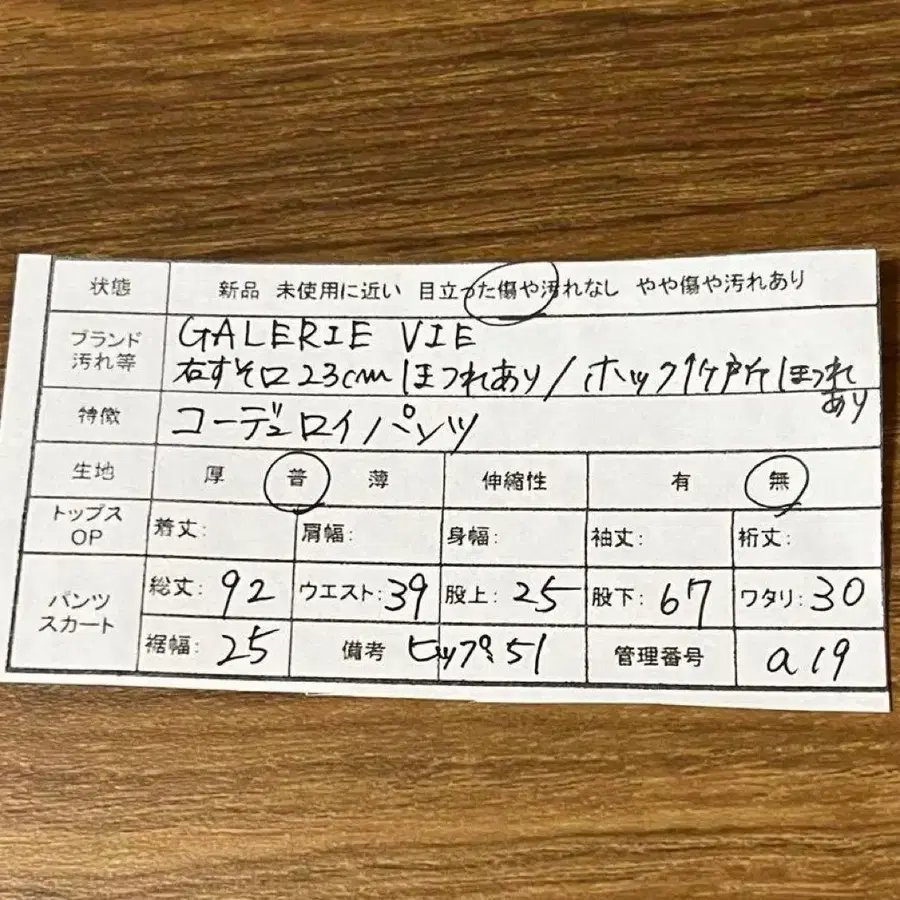 状態 新品 未使用に近い 目立った傷や汚れなし やや傷や汚れあり
ブランド GALERIE VIE
汚れ等 右すそ口23cmほつれあり/ホック1ヶ所ほつれ
あり
特徴 コーデュロイパンツ
生地 厚 普 薄 伸縮性 有 無
トップス
OP 着丈: 肩幅: 身幅: 袖丈: 裄丈:
パンツ
スカート 総丈: 92 ウエスト: 39 股上: 25 股下: 67 ワタリ: 30
裾幅: 25 備考 ヒップ: 51 管理番号 a19